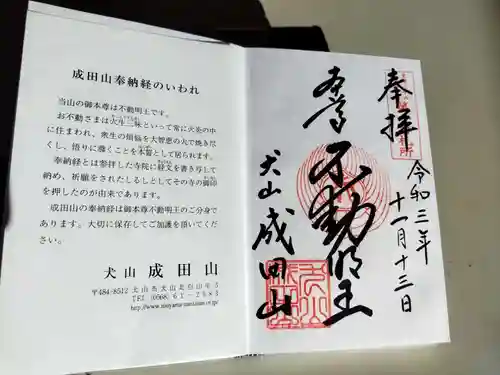 成田山奉納経のいわれ
当山の御本尊は不動明王です。
お不動さまは火生三昧といって常に火炎の中
に住まわれ、衆生の煩悩を大智恵の火で焼き尽
くし、悟りに導くことを本誓として居られます。
奉納経とは参拝した寺院に経文を書き写して
納め、祈願をされたしるしとしてその寺の御印
を押したのが由来であります。
成田山の奉納経は御本尊不動明王のご分身で
あります。大切に保存してご加護を頂いてくだ
さい。
犬山 成田山
〒484-8512 犬山市犬山北白山平5
TEL (0568) 61-2583
奉拝
令和三年
十一月十三日
本尊 不動明王
犬山 成田山